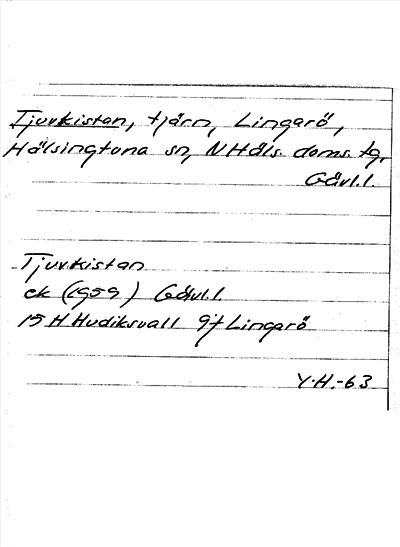 Tjuvkistan, tjärn, Lingarö,
Hälsingtuna sn, N Häls. doms. tg,
Gävl.l.
Tjuvkistan
ek (1959) Gävl.l.
15 H Hudiksvall 9f Lingarö
Y.H.-63